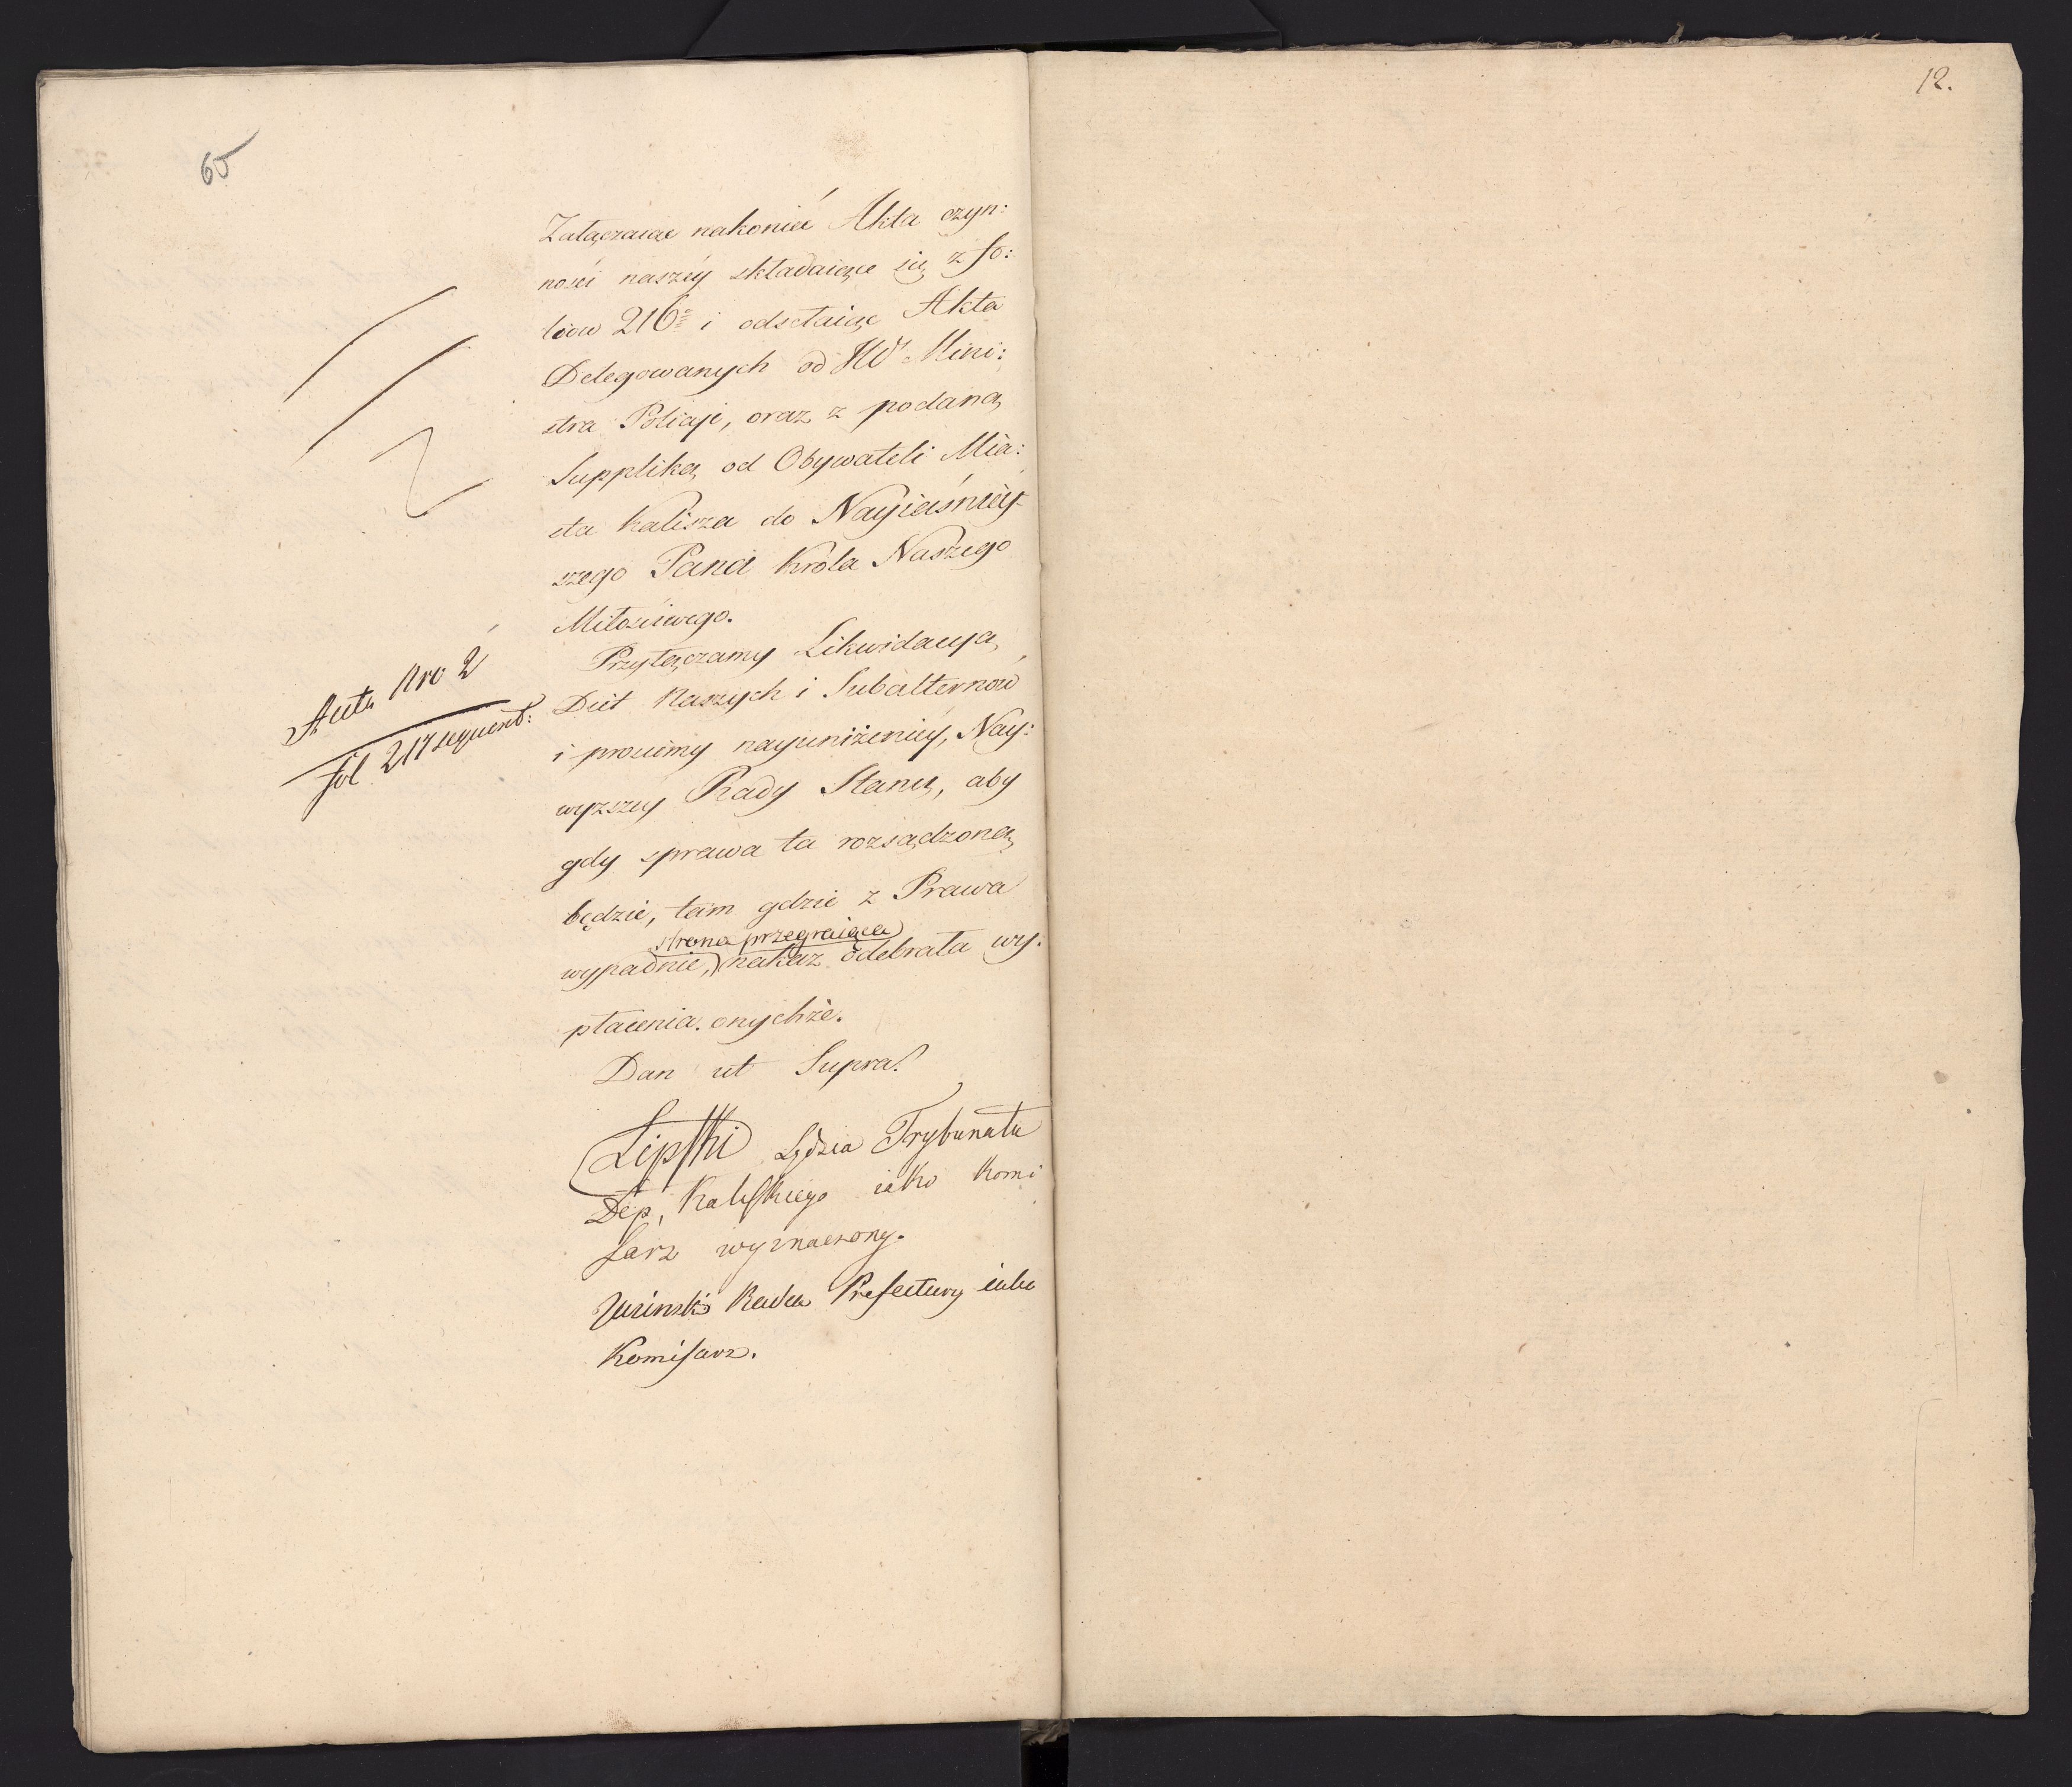 65
Załączaiąc nakoniec Akta czyn:
ności naszéy składaiące się z fo:
liow 216 i odsełaiąc Akta
Delegowanych od JW Mini:
stra Policyi, oraz z podaną
Suppliką od Obywateli Mia:
sta Kalisza do Nayiaśniéy
szego Pana Króla Naszego
Miłościwego.
Przyłączamy Likwidacyą
Diet Naszych i Subalternów
i prosimy nayuniżeniéy, Nay:
wyższéy Rady Stanu, aby
gdy sprawa ta rozsądzoną
będzie, tam gdzie z Prawa
strona przegraiąca
wypadnie, nakaz odebrała wy:
płacenia onychże.
Dan ut Supra.
Lipski Sędzia Trybunału
Dep. Kaliskiego iako Komi
sarz wyznaczony.
Radca Prefectury iako
Komisarz.
Acta Nro 2
fol 217 sequent:
12.